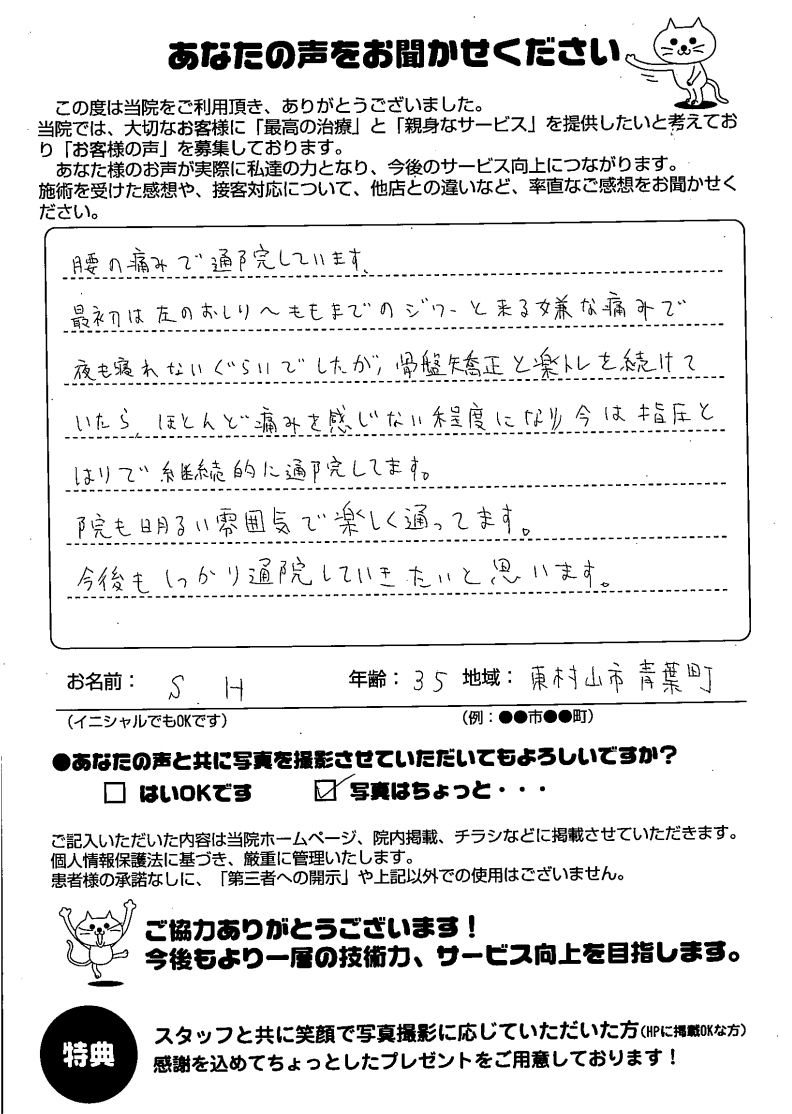 あなたの声をお聞かせください
この度は当院をご利用頂き、ありがとうございました。
当院では、大切なお客様に「最高の治療」と「親身なサービス」を提供したいと考えてお
り「お客様の声」を募集しております。
あなた様のお声が実際に私達の力となり、今後のサービス向上につながります。
施術を受けた感想や、接客対応について、他店との違いなど、率直なご感想をお聞かせく
ださい。
腰の痛みで通院しています。
最初は左のおしりへももまでのジワーと来る嫌な痛みで
夜も寝れないぐらいでしたが、骨盤矯正と楽トレを続けて
いたら、ほとんど痛みを感じない程度になり、今は指圧と
はりで継続的に通院してます。
院も明るい雰囲気で楽しく通ってます。
今後もしっかり通院していきたいと思います。
お名前： S. H 年齢：35 地域：東村山市青葉町
（イニシャルでもOKです） （例：●●市●●町）
●あなたの声と共に写真を撮影させていただいてもよろしいですか？
□ はいOKです ☑ 写真はちょっと・・・
ご記入いただいた内容は当院ホームページ、院内掲載、チラシなどに掲載させていただきます。
個人情報保護法に基づき、厳重に管理いたします。
患者様の承諾なしに、「第三者への開示」や上記以外での使用はございません。
ご協力ありがとうございます！
今後もより一層の技術力、サービス向上を目指します。
特典
スタッフと共に笑顔で写真撮影に応じていただいた方（HPに掲載OKな方）
感謝を込めてちょっとしたプレゼントをご用意しております！